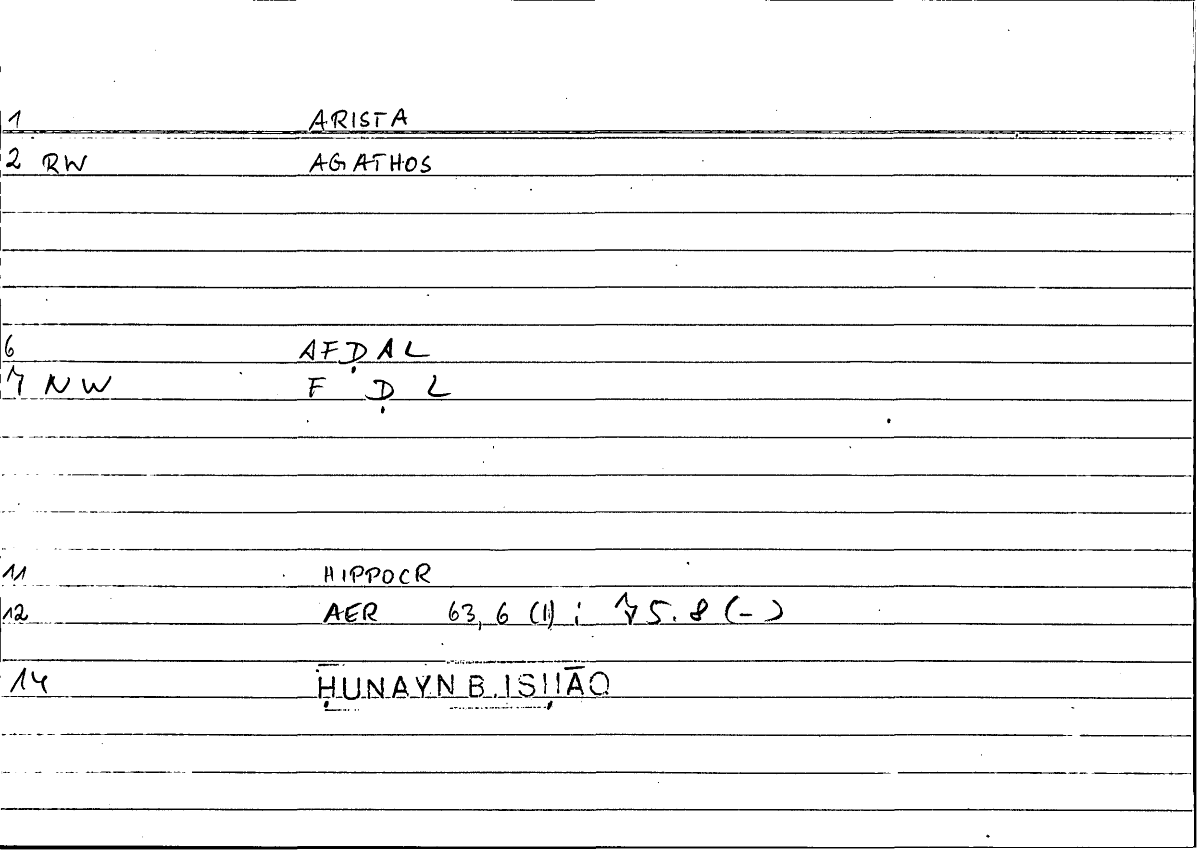 1 ARISTA
2 RW AGATHOS
6 AFḌAL
7 NW F Ḍ L
11 HIPPOCR
12 AER 63, 6 (1) ; 75.8 (-)
14 ḤUNAYN B. ISḤĀQ